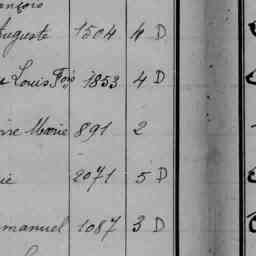 ançois
Auguste 1504 4 D
Louis Fois 1853 4 D
rre Marie 891 2
ie 2071 5 D
manuel 1087 3 D